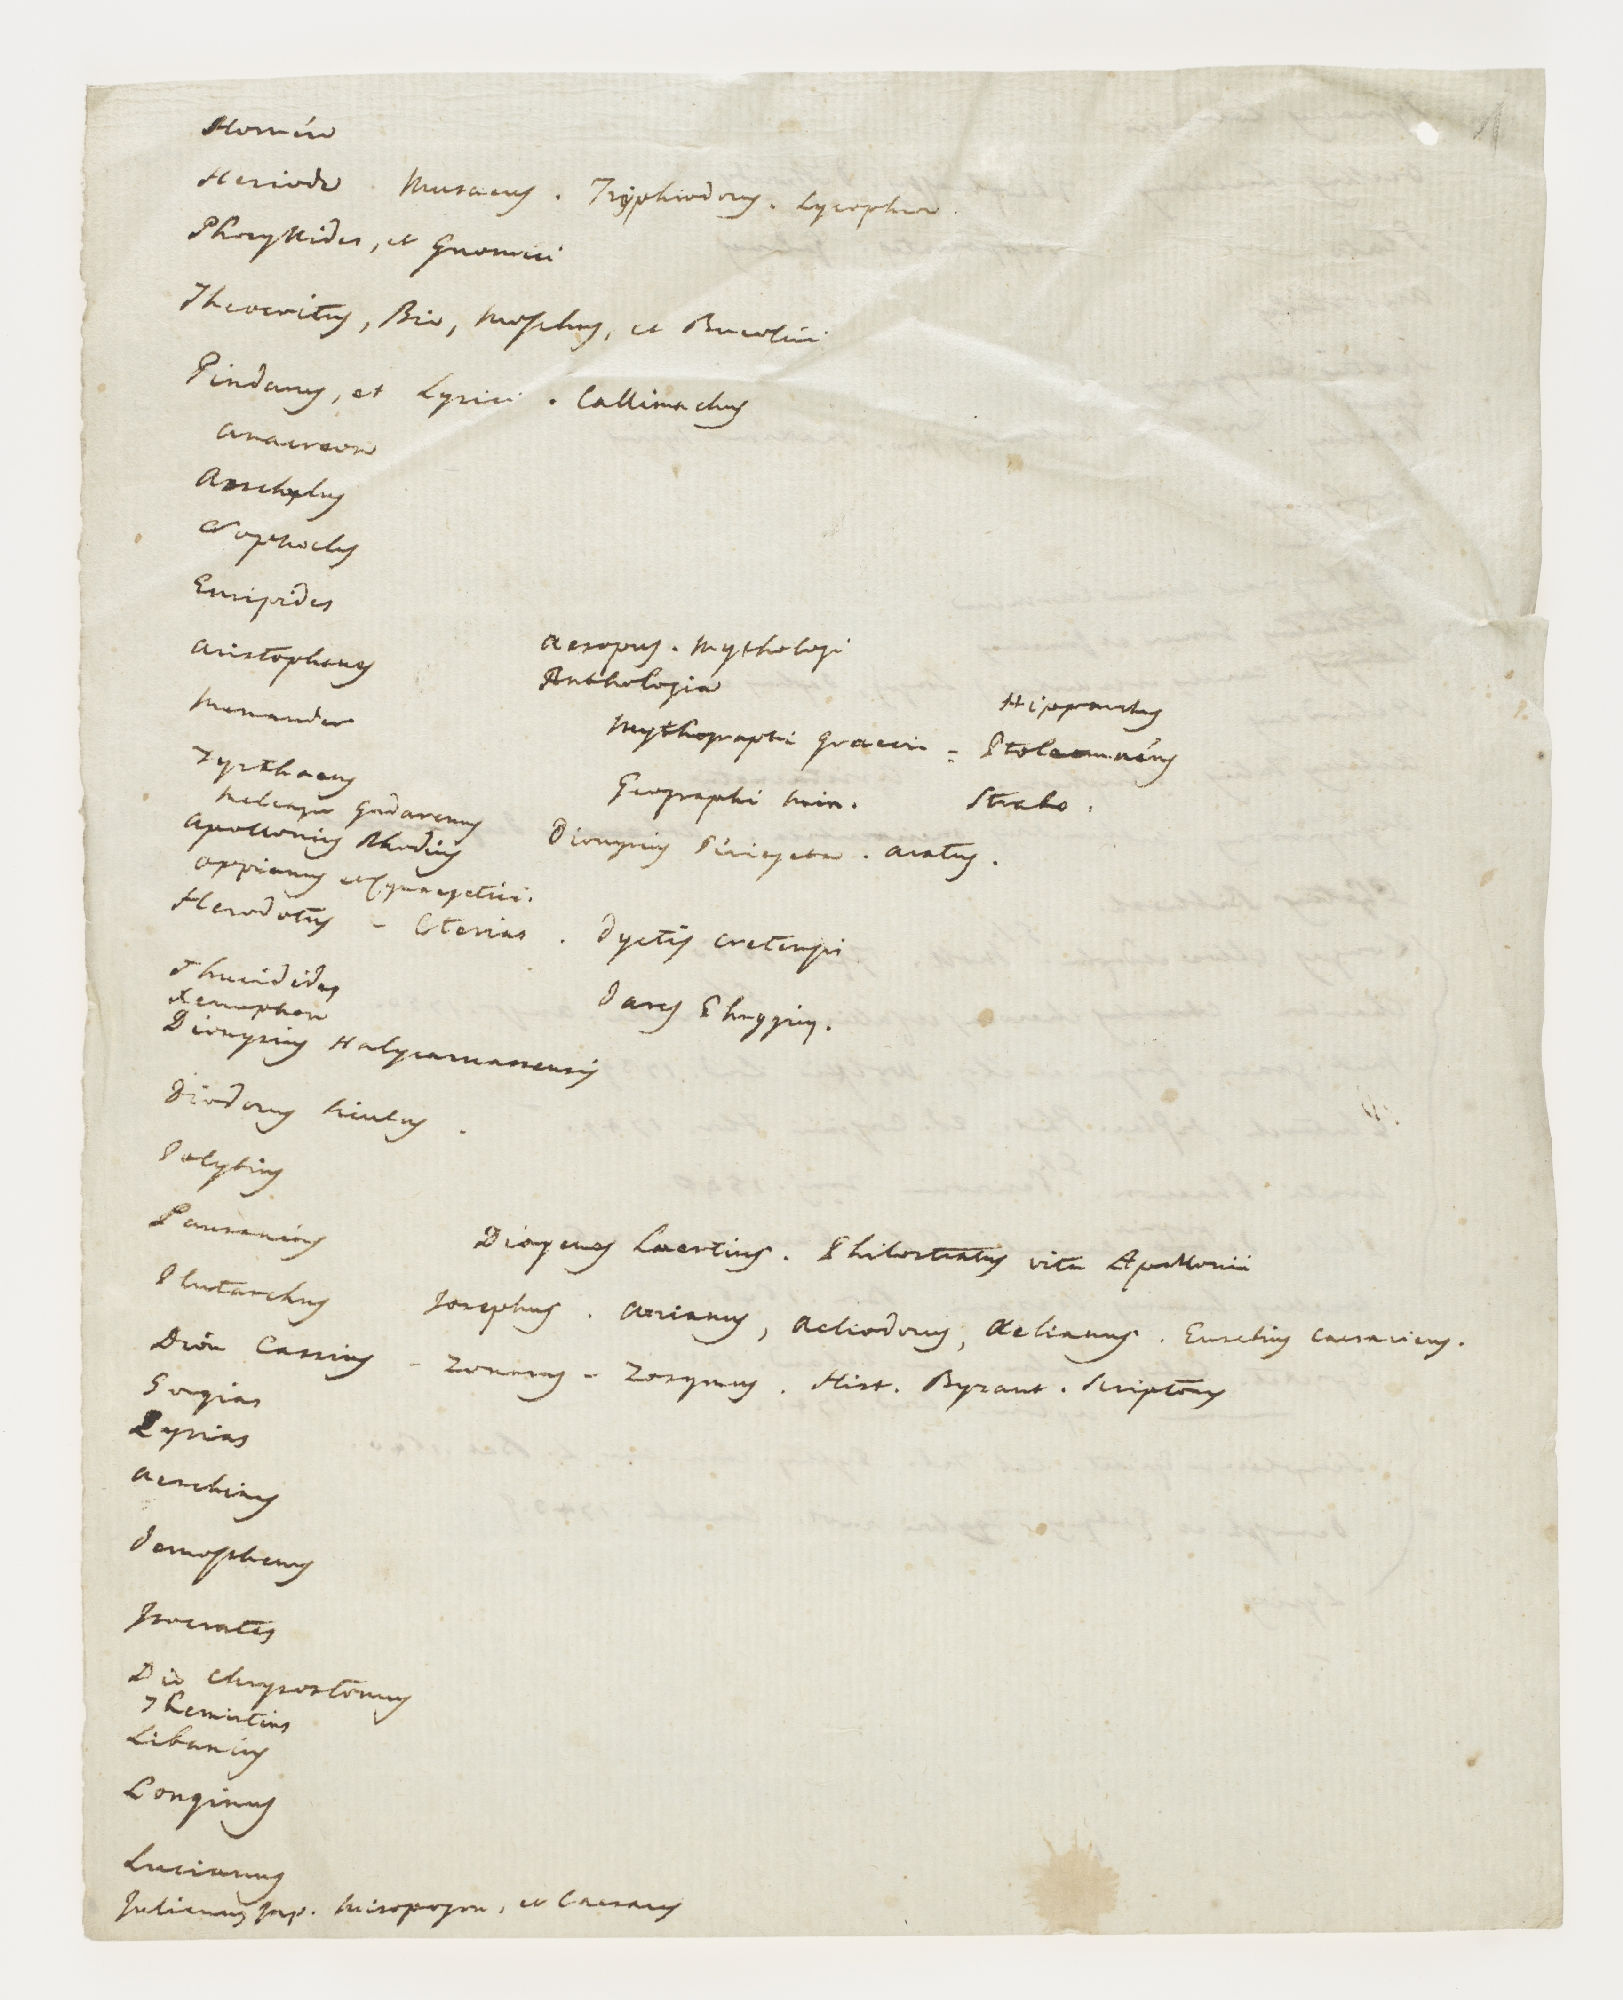 Homerus
Hesiodus . Musaeus . Tryphiodorus . Lycophron .
Phocyllides, et Gnomici
Theocritus, Bio, Moschus, et Bucolici
Pindarus, et Lyrici . Callimachus
Anacreon
Aeschylus
Sophocles
Euripides
Aristophanes
Aesopus . Mythologi
Anthologia
Menander
Hipparchus
Mythographi Graeci = Ptolemaeus
Tyrthaeus
Geographi min. Strabo .
Meleager Gadarenus
Apollonius Rhodius
Dionysius Periegetes . Aratus .
Oppianus et Cynegetici .
Herodotus - Ctesias . Dyctis cretensis
Thucidides
Dares Phrygius .
Xenophon
Dionysius Halycarnassensis
Diodorus Siculus .
Polybius
Pausanias
Diogenes Laertius . Philostratus vita Apollonii
Plutarchus Josephus . Arrianus, Aeliodorus, Aelianus . Eusebius Caesariens .
Dion Cassius - Zonaras - Zosymus . Hist . Byzant . Scriptores
Gorgias
Lysias
Aeschines
Demosthenes
Isocrates
Dio Chrysostomus
Themistius
Libanius
Longinus
Lucianus
Julianus Imp . Misopogon, et Caesares